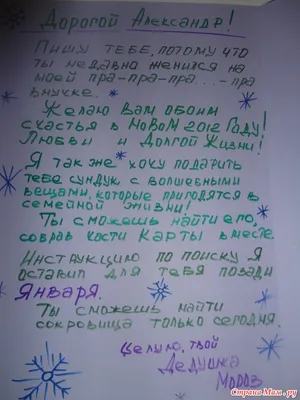 Дорогой Александр!
Пишу тебе, потому что
ты недавно женился на
моей пра-пра-пра...-пра
внучке.
Желаю Вам обоим
счастья в Новом 2012 Году!
Любви и Долгой Жизни!
Я так же хочу подарить
тебе сундук с волшебными
вещами, которые пригодятся в
семейной жизни!
Ты сможешь найти его,
собрав кости карты вместе
Инструкцию по поиску Я
оставил для тебя позади
Января.
Ты сможешь найти
сокровища только сегодня.
Целую, твой
Дедушка
Мороз
Страна-Мам.ру